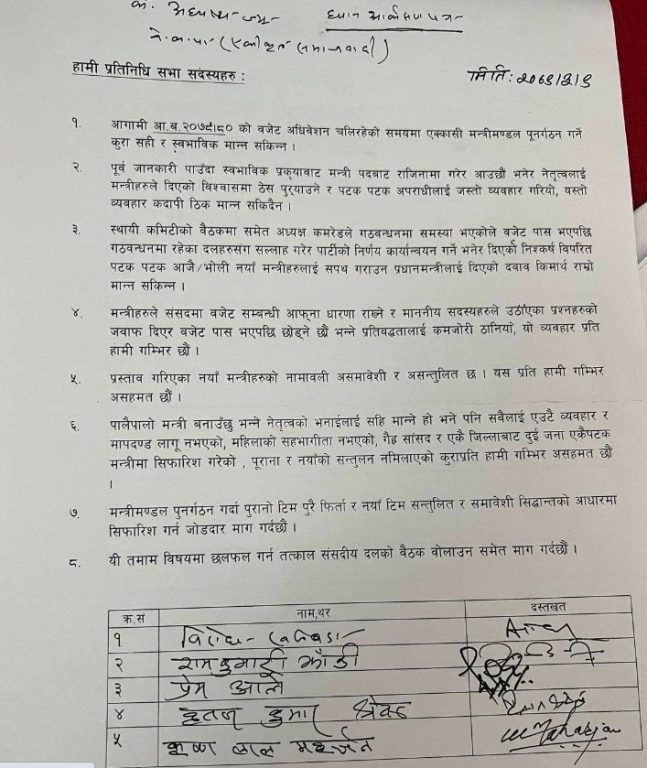 क. अध्यक्ष-ज्यू- ध्यान आकर्षण पत्र-
ने.क.पा-(एकीकृत समाजवादी)
हामी प्रतिनिधि सभा सदस्यहरु : मिति:
१. आगामी आ.ब.२०७९।८० को वजेट अधिवेशन चलिरहेको समयमा एक्कासी मन्त्रीमण्डल पूनर्गठन गर्ने
कुरा सही र स्वभाविक मान्न सकिन्न ।
२. पूर्व जानकारी पाउँदा स्वभाविक प्रकृयावाट मन्त्री पदबाट राजिनामा गरेर आउछौ भनेर नेतृत्वलाई
मन्त्रीहरुले दिएको विश्वासमा ठेस पुऱ्याउने र पटक पटक अपराधीलाई जस्तो व्यवहार गरियो, यस्तो
व्यवहार कदापी ठिक मान्न सकिदैन ।
३. स्थायी कमिटीको बैठकमा समेत अध्यक्ष कमरेडले गठवन्धनमा समस्या भएकोले वजेट पास भएपछि
गठवन्धनमा रहेका दलहरुसंग सल्लाह गरेर पार्टीको निर्णय कार्यान्वयन गर्ने भनेर दिएको निश्कर्ष विपरित
पटक पटक आजै/भोली नयाँ मन्त्रीहरुलाई सपथ गराउन प्रधानमन्त्रीलाई दिएको दवाव किमार्थ राम्रो
मान्न सकिन्न ।
४. मन्त्रीहरुले संसदमा वजेट सम्बन्धी आफ्ना धारणा राख्ने र माननीय सदस्यहरुले उठाँएका प्रश्नहरुको
जवाफ दिएर वजेट पास भएपछि छोड्ने छौ भन्ने प्रतिवद्धतालाई कमजोरी ठानियो, यो व्यवहार प्रति
हामी गम्भिर छौं ।
५. प्रस्ताव गरिएका नयाँ मन्त्रीहरुको नामावली असमावेशी र असन्तुलित छ । यस प्रति हामी गम्भिर
असहमत छौं ।
६. पालैपालो मन्त्री बनाउँछु भन्ने नेतृत्वको भनाईलाई सहि मान्ने हो भने पनि सवैलाई एउटै व्यवहार र
मापदण्ड लागू नभएको, महिलाको सहभागीता नभएको, गैह्र सांसद र एकै जिल्लाबाट दुई जना एकैपटक
मन्त्रीमा सिफारिश गरेको , पूराना र नयाँको सन्तुलन नमिलाएको कुराप्रति हामी गम्भिर असहमत छौ
।
७. मन्त्रीमण्डल पुनर्गठन गर्दा पुरानो टिम पुरै फिर्ता र नयाँ टिम सन्तुलित र समावेशी सिद्धान्तको आधारमा
सिफारिश गर्न जोडदार माग गर्दछौं ।
८. यी तमाम विषयमा छलफल गर्न तत्काल संसदीय दलको बैठक वोलाउन समेत माग गर्दछौं ।
क्र.सं नाम,थर दस्तखत
१ विरोध-
२ रामकुमारी झाँक्री
३ प्रेम आले
४ कुमार श्रेष्ठ
५ कृष्ण लाल महर्जन Maharjan